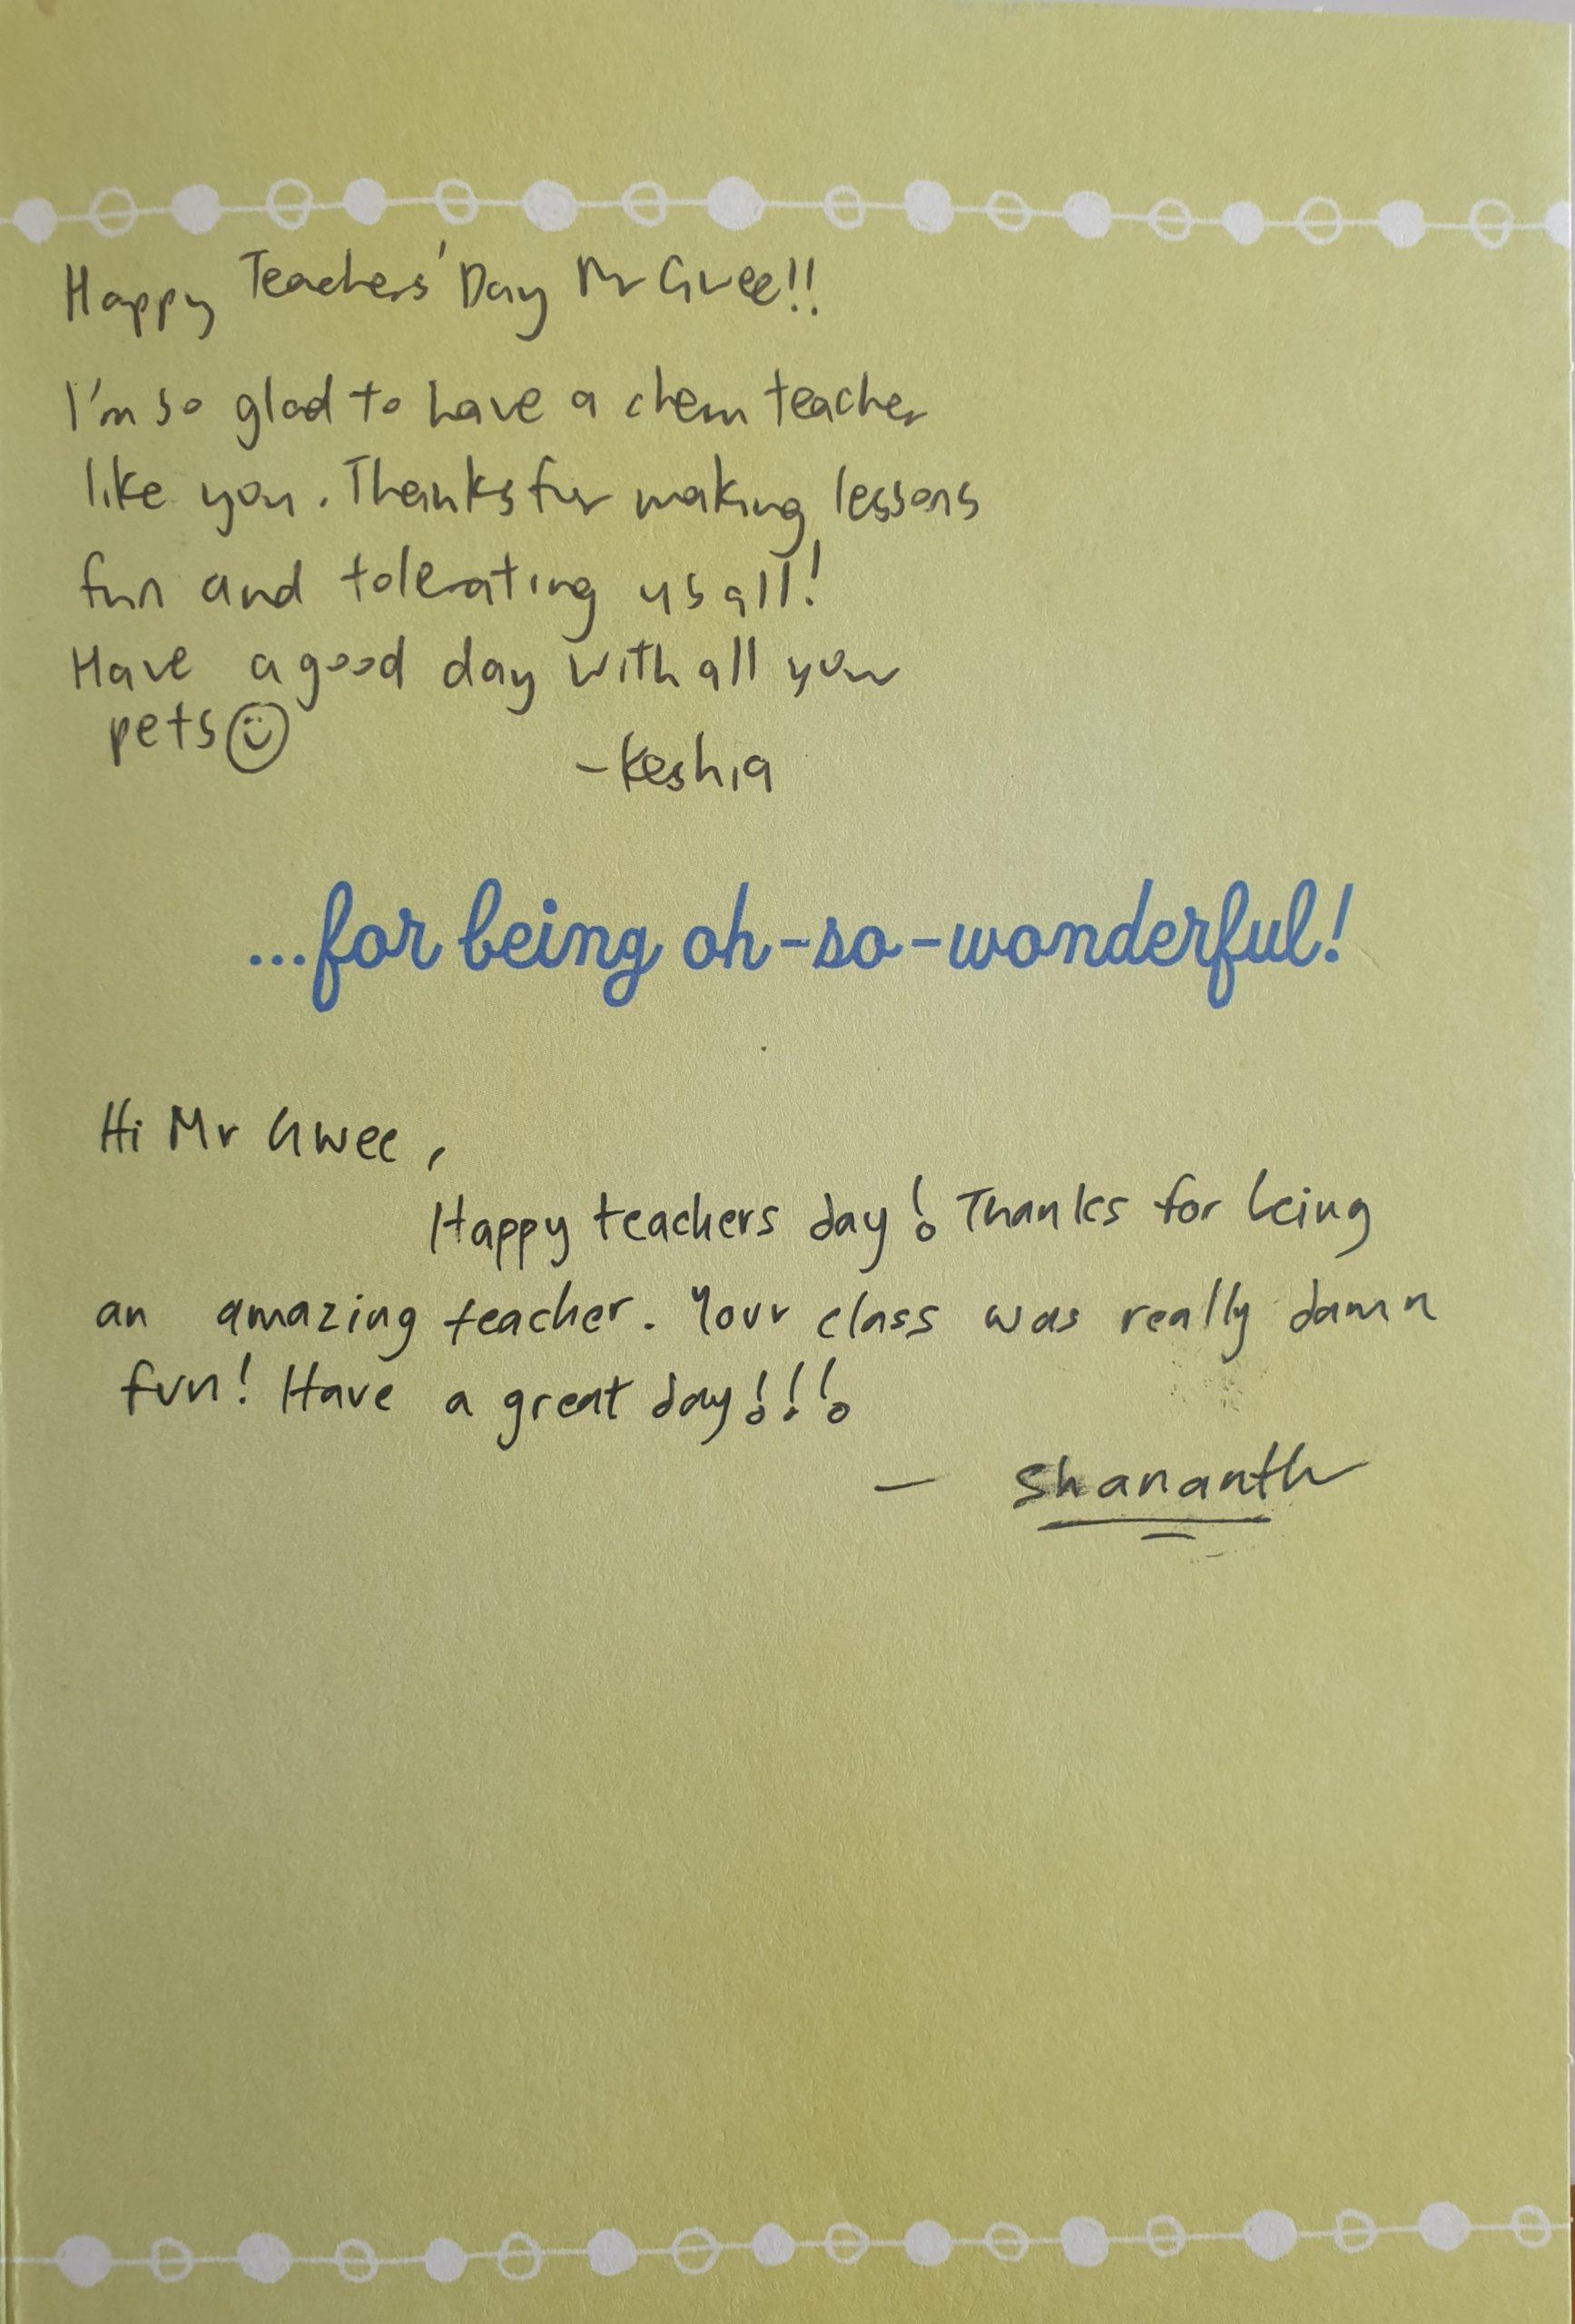 Happy Teachers' Day Mr Gwee!!
I'm so glad to have a chem teacher
like you. Thanks for making lessons
fun and tolerating us all!
Have a good day with all your
pets
-Keshia
...for being oh-so-wonderful!
Hi Mr Gwee,
Happy teachers day! Thanks for being
an amazing teacher. Your class was really damn
fun! Have a great day!!!
— Shananth